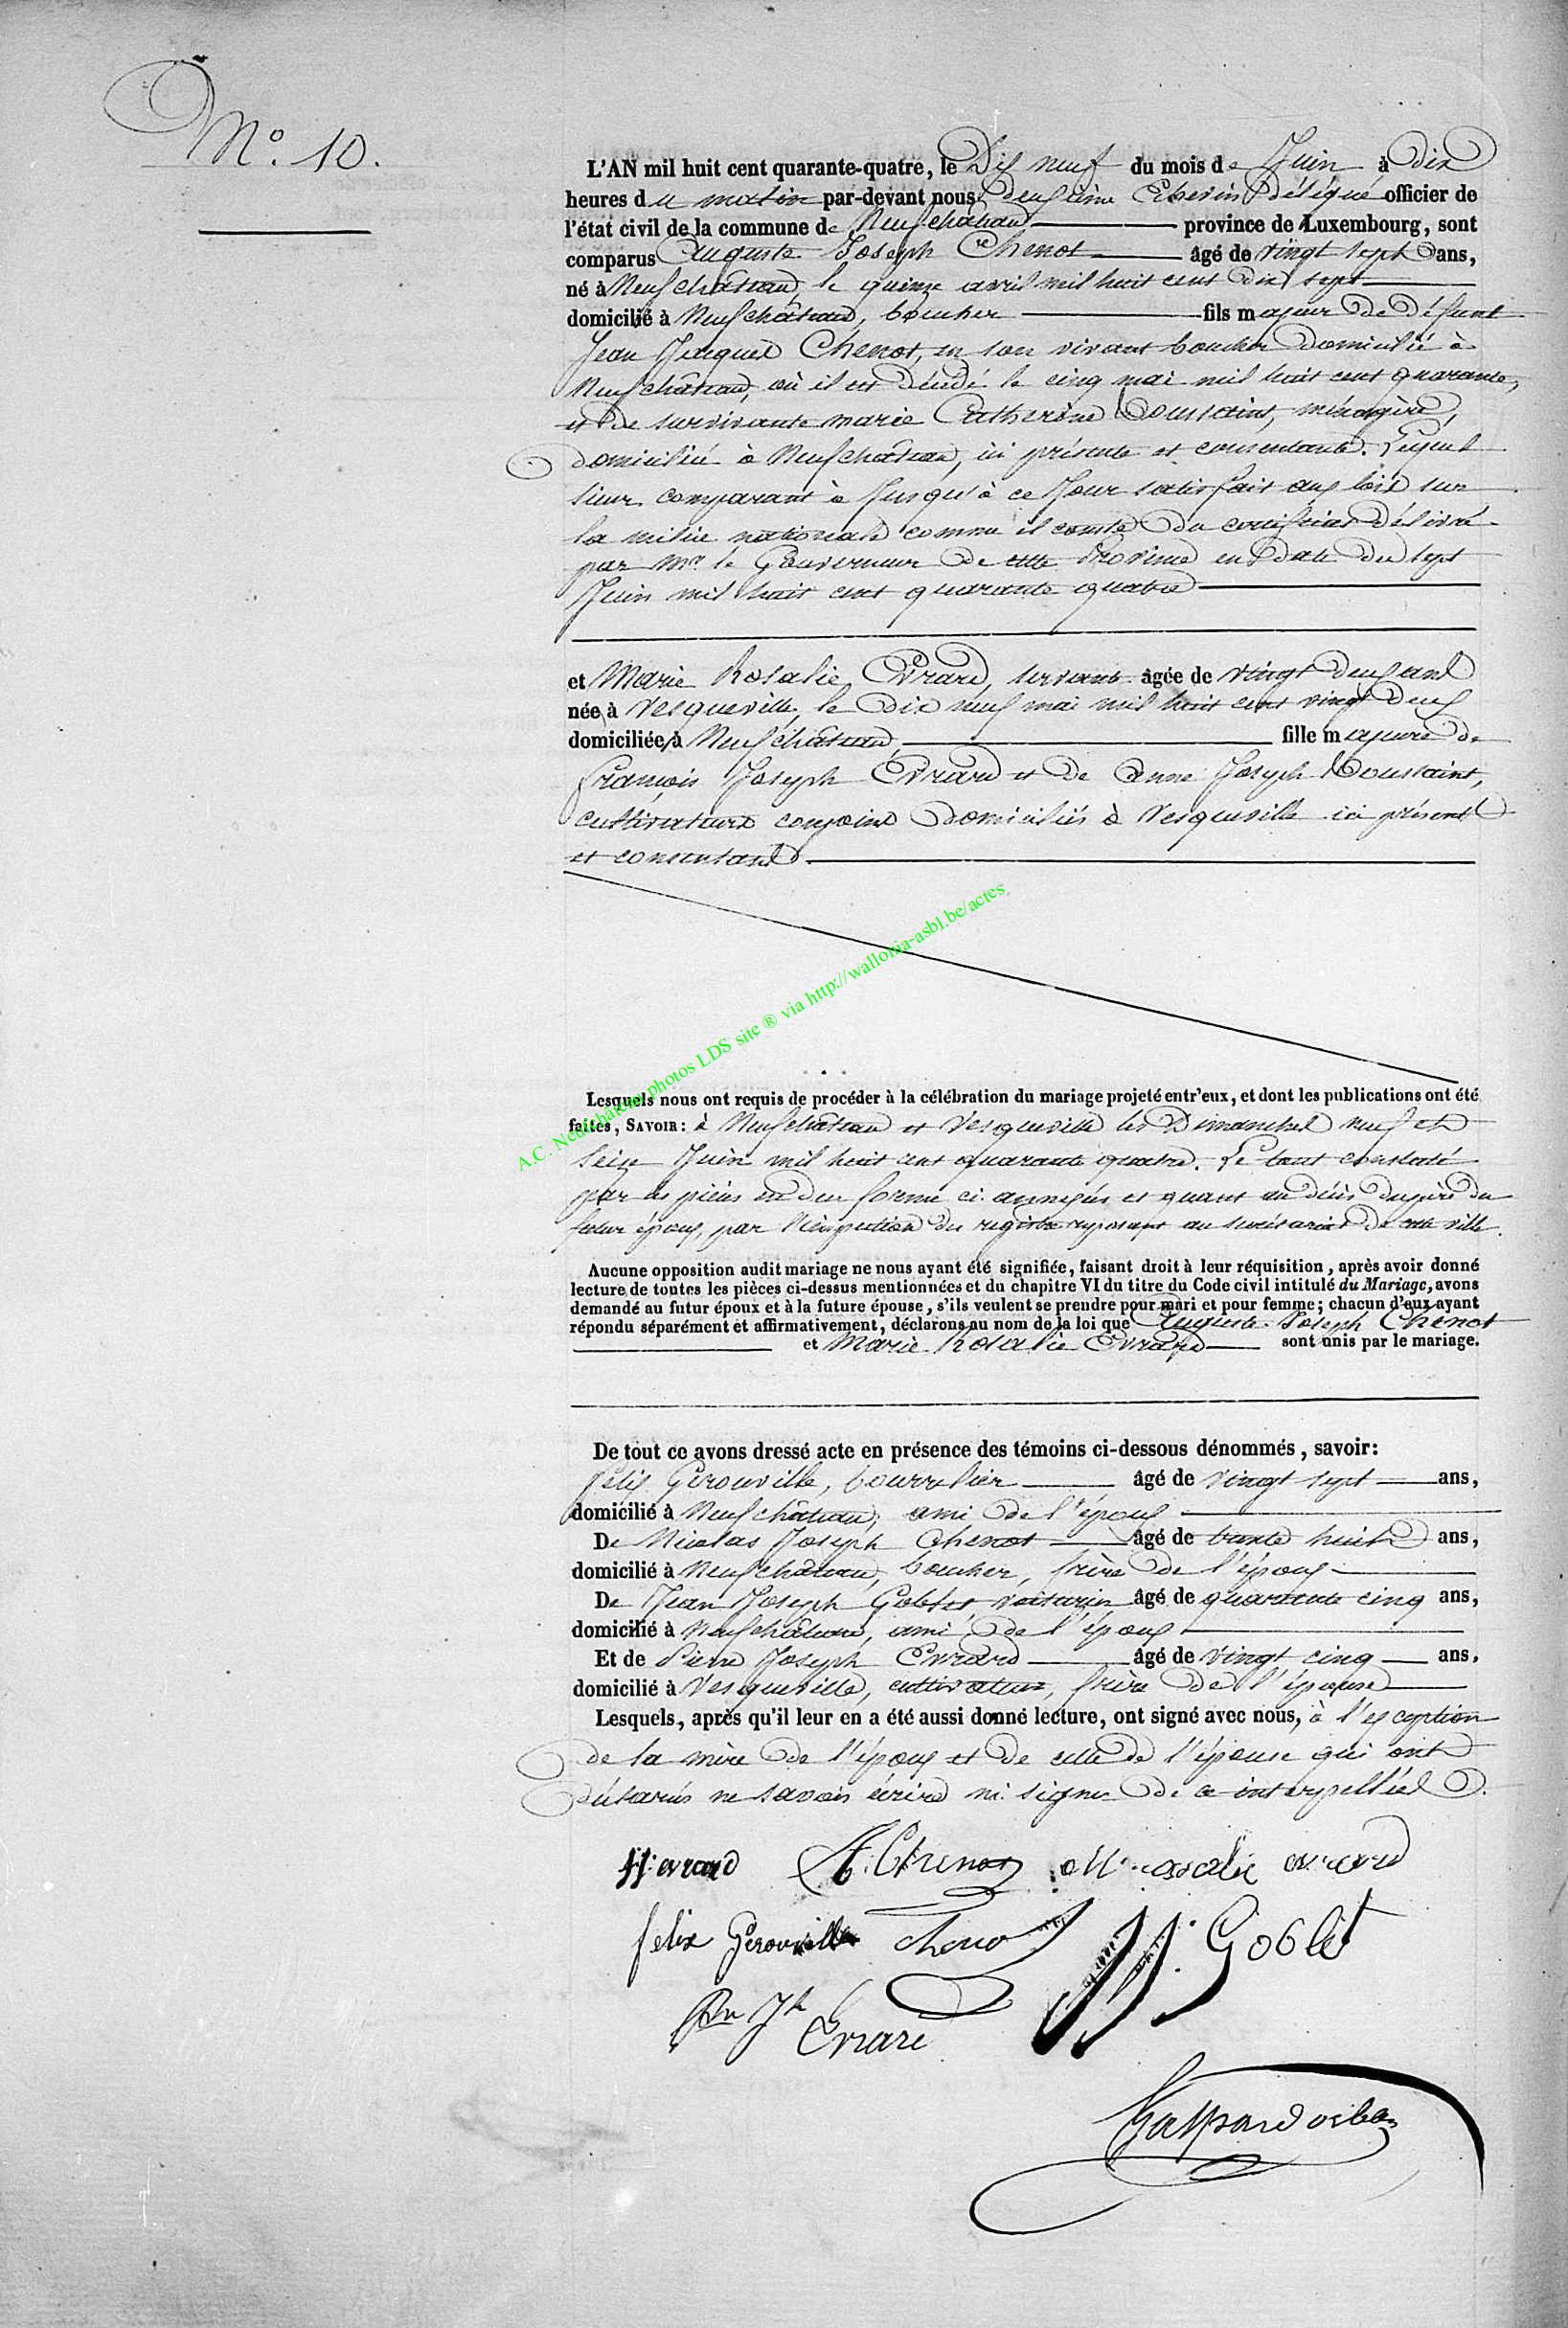 N° 10.
L'AN mil huit cent quarante-quatre, le Dix neuf du mois de Juin à dix
heures du matin par-devant nous deuxième Echevin délégué officier de
l'état civil de la commune de Neufchâteau province de Luxembourg, sont
comparus Auguste Joseph Chenot âgé de vingt sept ans,
né à Neufchâteau, le quinze avril mil huit cent dix sept
domicilié à Neufchâteau, boucher fils majeur de défunt
Jean Jacques Chenot, en son vivant boucher domicilié à
Neufchâteau, où il est décédé le cinq mai mil huit cent quarante,
et de survivante marie Catherine Toussaint, ménagère,
domiciliée à Neufchâteau, ici présente et consentante. Lequel
sieur comparant à Jusqu'à ce Jour satisfait aux lois sur
la milice nationale comme il conste du certificat délivré
par Mr. le Gouverneur de cette Province en date du sept
Juin mil huit cent quarante quatre
et Marie Rosalie Evrard, servante âgée de vingt deux ans
née à Vesqueville, le dix neuf mai mil huit cent vingt deux
domiciliée à Neufchâteau, fille majeure de
françois Joseph Evrard et de Anne Joseph Toussaint,
cultivateurs conjoins domiciliés à Vesqueville ici présents
et consentants.
A.C. Neufchâteau photos LDS site ® via http://wallonia-asbl.be/actes
Lesquels nous ont requis de procéder à la célébration du mariage projeté entr'eux, et dont les publications ont été
faites, SAVOIR: à Neufchâteau et Vesqueville les Dimanches neuf et
Seize Juin mil huit cent quarante quatre. Le tout constaté
par les pièces en due forme ci annexées et quant au décès du père du
futur époux, par l'inspection du registre reposant au secrétariat de cette ville.
Aucune opposition audit mariage ne nous ayant été signifiée, faisant droit à leur réquisition, après avoir donné
lecture de toutes les pièces ci-dessus mentionnées et du chapitre VI du titre du Code civil intitulé du Mariage, avons
demandé au futur époux et à la future épouse, s'ils veulent se prendre pour mari et pour femme; chacun d'eux ayant
répondu séparément et affirmativement, déclarons au nom de la loi que Auguste Joseph Chenot
et Marie Rosalie Evrard sont unis par le mariage.
De tout ce avons dressé acte en présence des témoins ci-dessous dénommés, savoir:
félix Gérouville, bourrelier âgé de vingt sept ans,
domicilié à Neufchâteau, ami de l'époux
De Nicolas Joseph Chenot âgé de trente huit ans,
domicilié à Neufchâteau, boucher, frère de l'époux
De Jean Joseph Goblet voiturier âgé de quarante cinq ans,
domicilié à Neufchâteau, ami de l'époux
Et de Pierre Joseph Evrard âgé de vingt cinq ans,
domicilié à Vesqueville, cultivateur, frère de l'épouse
Lesquels, après qu'il leur en a été aussi donné lecture, ont signé avec nous, à l'exception
de la mère de l'époux et de celle de l'épouse qui ont
déclarés ne savoir écrire ni signer de ce interpellées.
evrard A. Chenot M. rosalie evrard
felix Gerouville Chenot JJ. Goblet
Jh Evrard